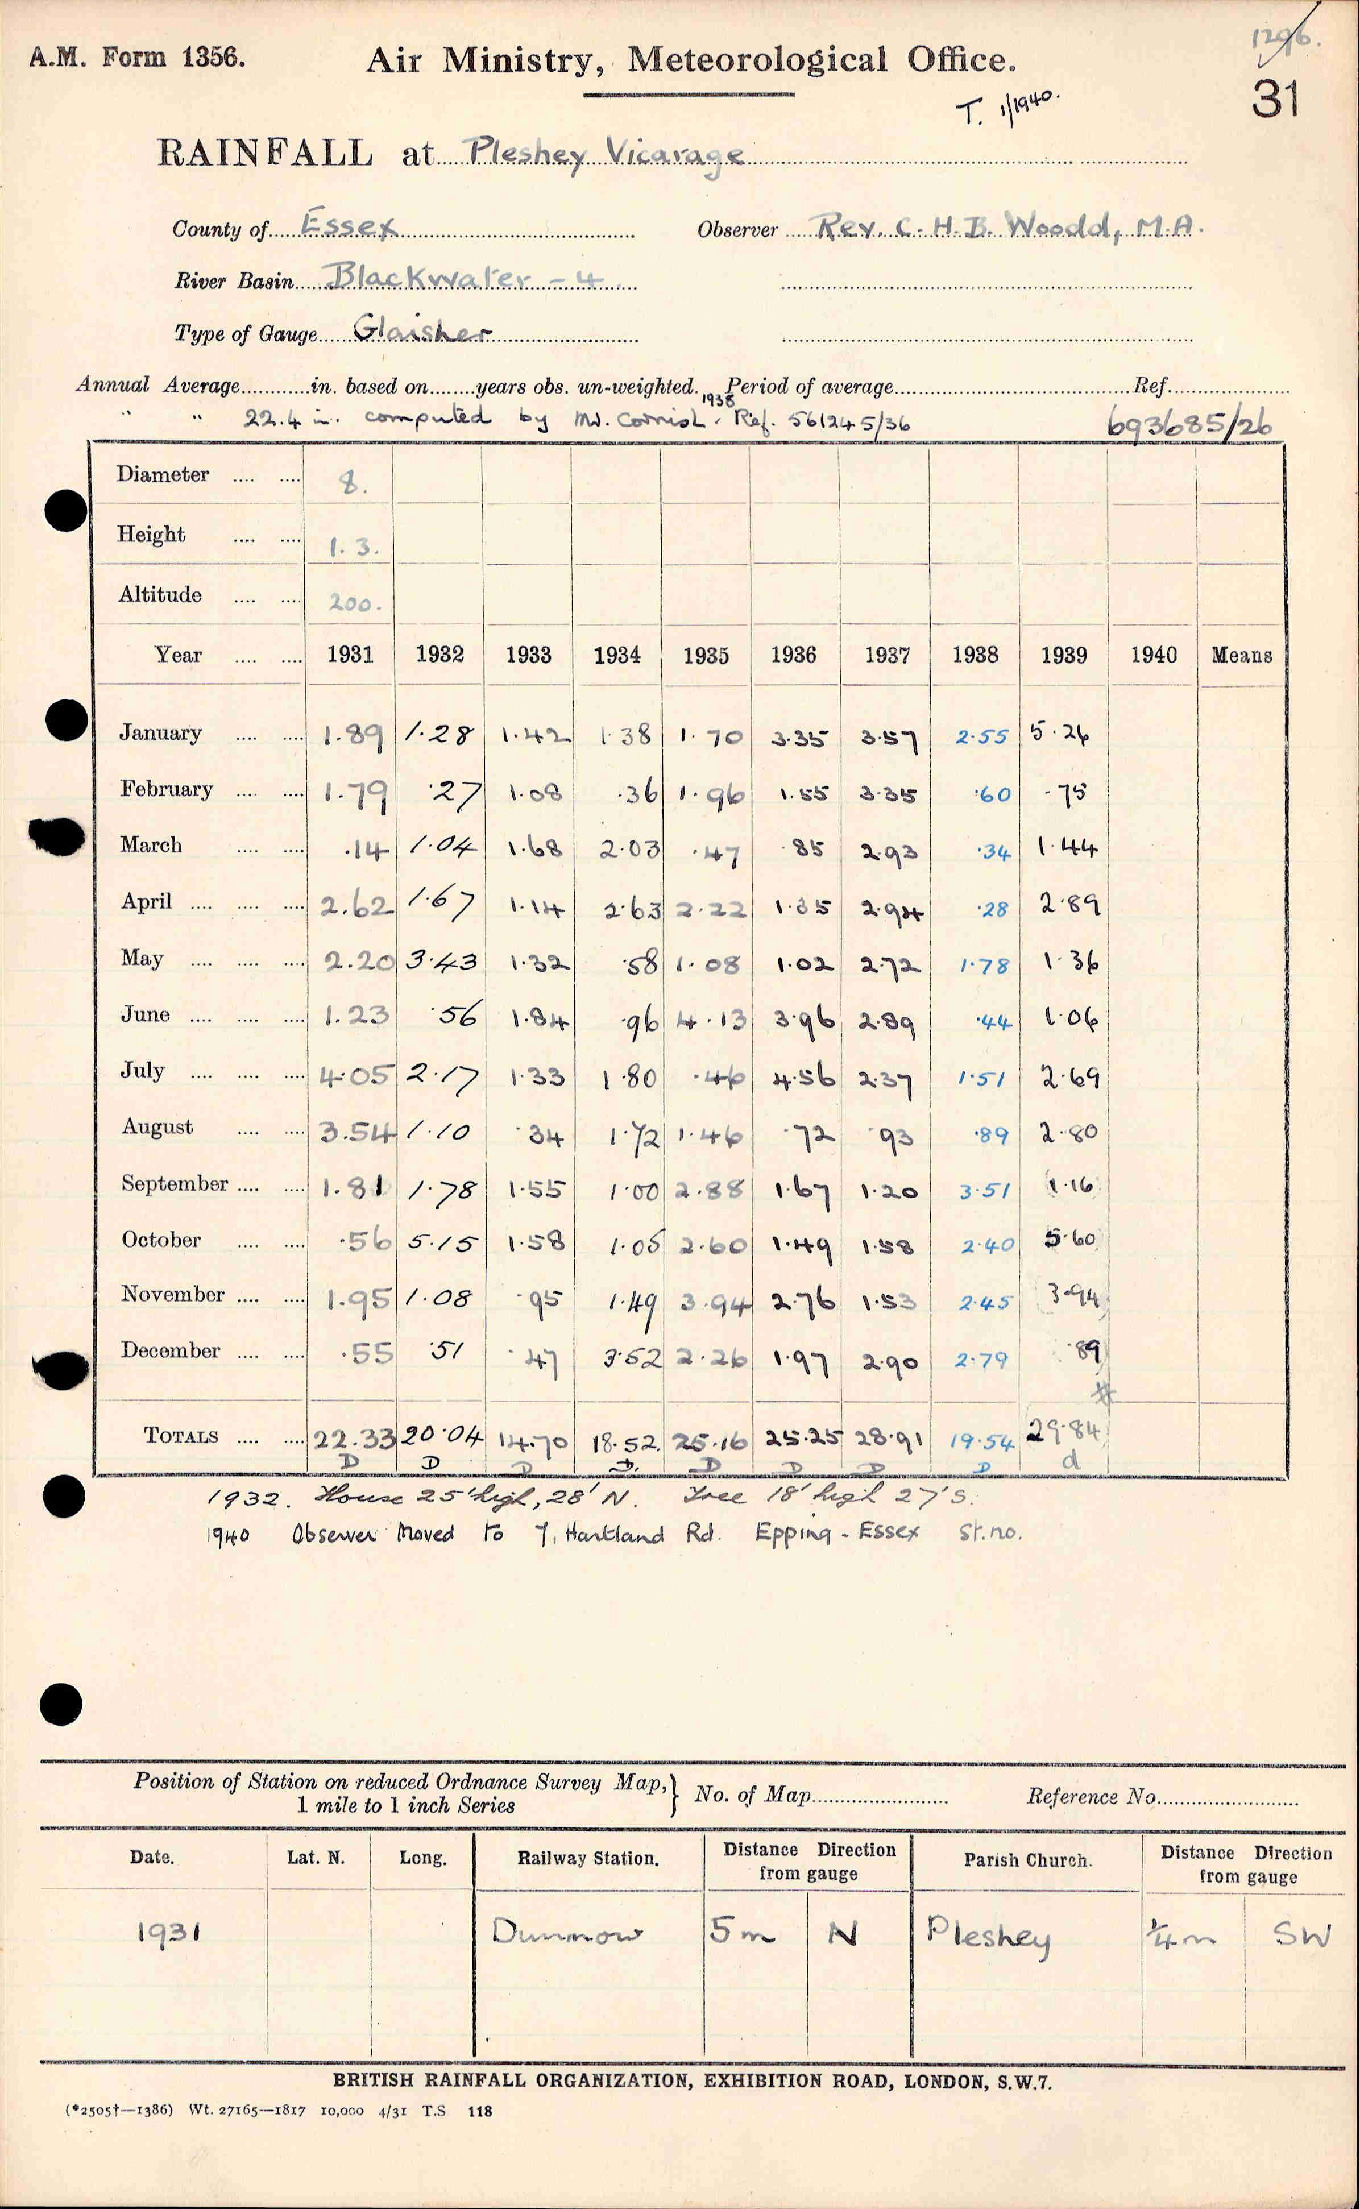 1296.
A.M. Form 1356. Air Ministry, Meteorological Office. 31
T. 1/1940.
RAINFALL at Pleshey Vicarage
County of Essex Observer Rev. C. H. B. Woodd, M.A.
River Basin Blackwater - 4.
Type of Gauge Glaisher
Annual Average............in. based on........years obs. un-weighted. Period of average............Ref............
" " 22.4 in. computed by Mr. Cornish. 1938 Ref. 561245/36 693685/26
Diameter .... .... 8.
Height .... .... 1.3.
Altitude .... .... 200.
Year .... .... 1931 1932 1933 1934 1935 1936 1937 1938 1939 1940 Means
January .... .... 1.89 1.28 1.42 1.38 1.70 3.35 3.57 2.55 5.26
February .... .... 1.79 .27 1.08 .36 1.96 1.55 3.35 .60 .75
March .... .... .14 1.04 1.68 2.03 .47 .85 2.93 .34 1.44
April .... .... .... 2.62 1.67 1.14 2.63 2.22 1.35 2.94 .28 2.89
May .... .... .... 2.20 3.43 1.32 .58 1.08 1.02 2.72 1.78 1.36
June .... .... .... 1.23 .56 1.84 .96 4.13 3.96 2.89 .44 1.06
July .... .... .... 4.05 2.17 1.33 1.80 .46 4.56 2.37 1.51 2.69
August .... .... 3.54 1.10 .34 1.72 1.46 .72 .93 .89 2.80
September .... .... 1.81 1.78 1.55 1.00 2.88 1.67 1.20 3.51 1.16
October .... .... .56 5.15 1.58 1.05 2.60 1.49 1.58 2.40 5.60
November .... .... 1.95 1.08 .95 1.49 3.94 2.76 1.53 2.45 3.94
December .... .... .55 .51 .47 3.52 2.26 1.97 2.90 2.79 .89
TOTALS .... .... 22.33 20.04 14.70 18.52 25.16 25.25 28.91 19.54 29.84
D D D D D D D D d
1932. House 25' high, 28' N. Tree 18' high 27' S.
1940 Observer moved to 7, Hartland Rd. Epping - Essex St. no.
Position of Station on reduced Ordnance Survey Map, } No. of Map............ Reference No............
1 mile to 1 inch Series
Date. Lat. N. Long. Railway Station. Distance Direction from gauge Parish Church. Distance Direction from gauge
1931 Dunmow 5 m N Pleshey 1/4 m SW
BRITISH RAINFALL ORGANIZATION, EXHIBITION ROAD, LONDON, S.W.7.
(*2505†—1386) Wt. 27165—1817 10,000 4/31 T.S 118